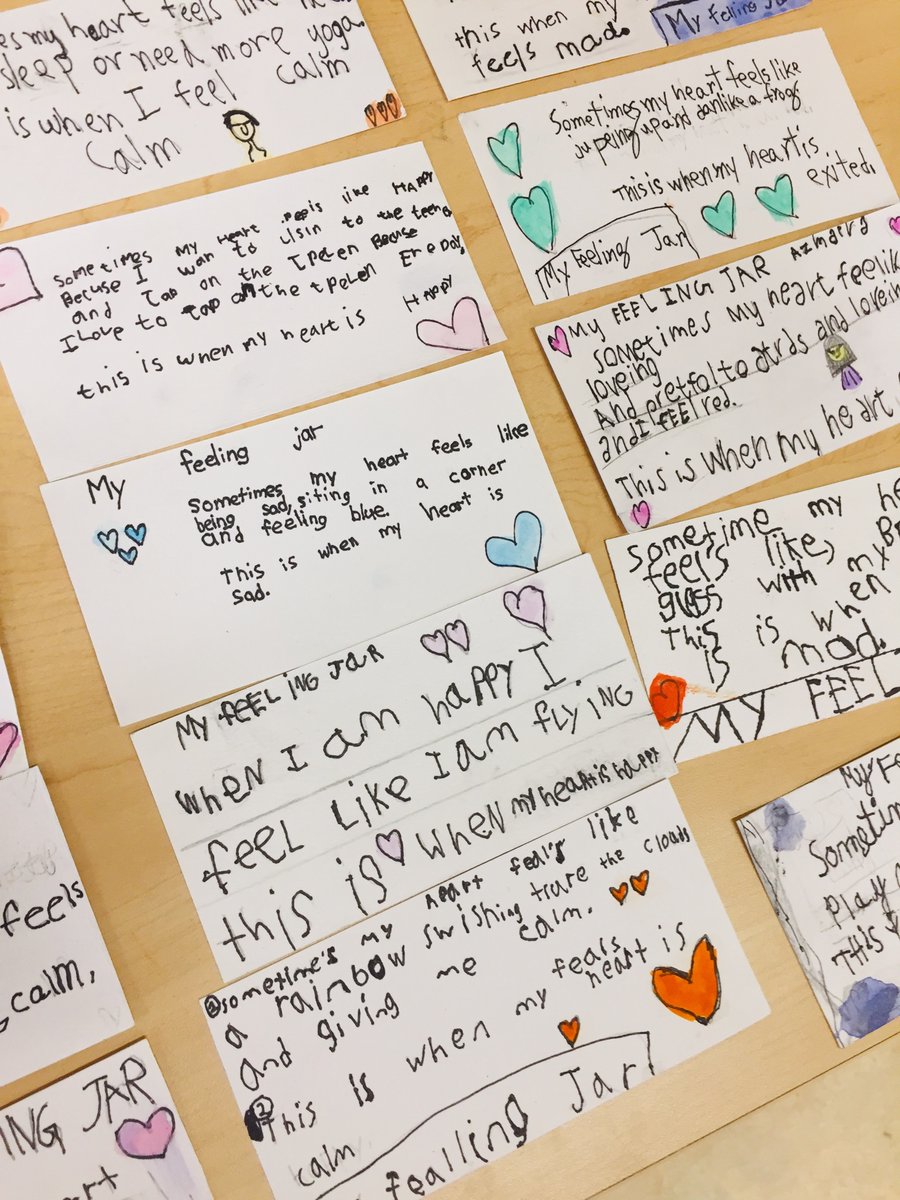 es my heart feels like
sleep or need more yoga
is when I feel calm
calm
this when my
feels mad.
My felling Jar
Sometimes my heart feels like
jupeing up and dawn like a frog
This is when my heart is
exited.
My Feeling Jar
Sometimes my Heart feels like HAPPY
Becuse I wan to Lisin to the
and Tap on the Becuse
I Love to Tap on the EreDay,
this is when my heart is HAPPY
MY FEELING JAR
sometimes My heart feelike
loveing
And and loveing
and I FEEL red.
This is when my heart
My feeling jar
Sometimes my heart feels like
being sad, siting in a corner
and feeling blue.
This is when my heart is
sad.
sometime my he
feel's like,
glass with my
This is when
is mad.
MY FEEL
MY FEELING JAR
WHEN I am happy I
feel LIKE I am FLYING
this is WHEN my heart is happy
Sometime's my heart feal's like
a rainbow swishing the clouds
and giving me calm.
This is when my feals
heart is
calm
fealling Jar
feels
calm,
ING JAR
art
My Fe
Sometim
Play
THIS